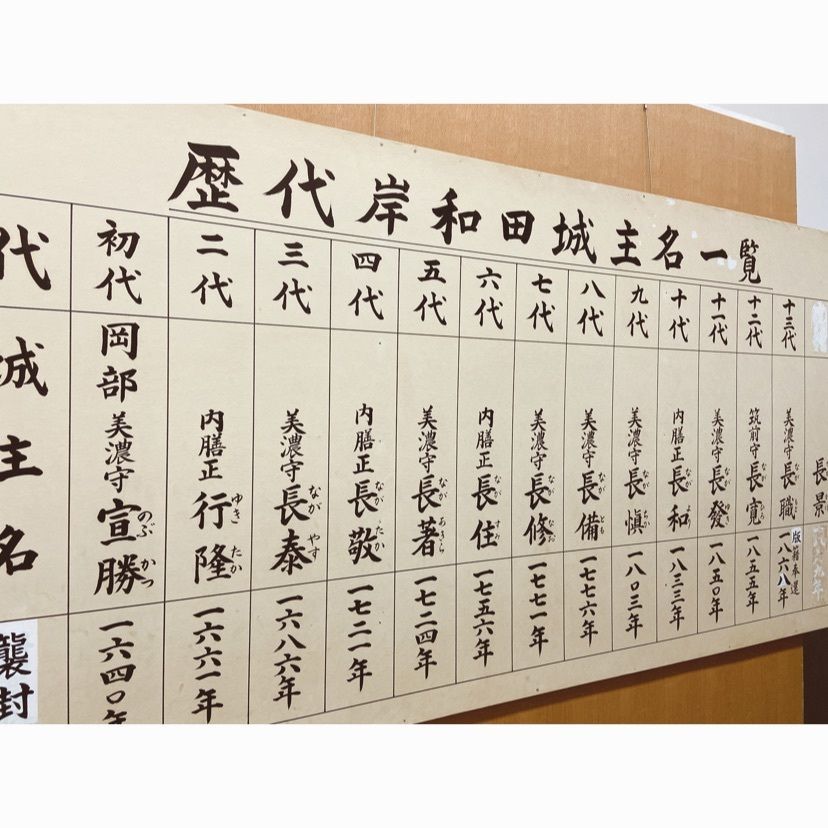 歴代岸和田城主名一覧
代
城主名
襲封
初代
岡部美濃守宣勝
のぶかつ
一六四〇年
二代
内膳正行隆
ゆきたか
一六六一年
三代
美濃守長泰
ながやす
一六八六年
四代
内膳正長敬
ながたか
一七二一年
五代
美濃守長著
ながあきら
一七二四年
六代
内膳正長住
ながすみ
一七五六年
七代
美濃守長修
ながなお
一七七一年
八代
美濃守長備
ながとも
一七七六年
九代
美濃守長愼
ながちか
一八〇三年
十代
内膳正長和
ながより
一八三三年
十一代
美濃守長發
ながゆき
一八五〇年
十二代
筑前守長寛
ながひろ
一八五五年
十三代
美濃守長職
なが
版籍奉還
一八六八年
長景